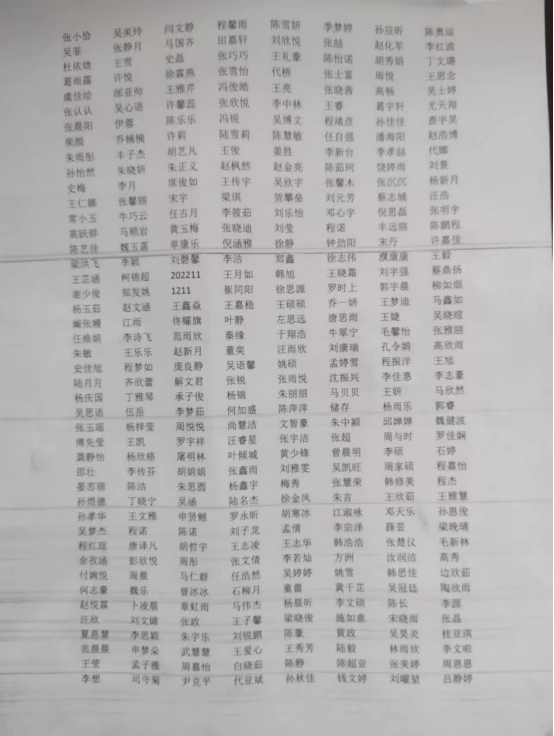 张小恰 吴美玲 闫文静 程馨雨 陈雪妍 季梦婷 孙冠昕 陈奥运
吴菲 张静月 马国齐 田嘉轩 刘欣悦 张喆 赵化军 李红波
杜依焓 王雪 史磊 张巧巧 王礼豪 陈怡诺 胡秀娟 丁文璐
葛雨露 许悦 徐霖燕 张雪怡 代桥 张士富 周悦 王思念
虞佳绘 邰亚帅 王雅芹 冯俊皓 王亮 张晓茜 高畅 吴士婷
张认认 吴心语 许馨蕊 张欣悦 李中林 王睿 葛字轩 尤天翔
张晨阳 伊蓉 陈乐乐 冯锐 吴博文 程绪彦 孙佳佳 查宇昊
朱颜 乔楠楠 许莉 陆雪莉 陈慧敏 任自强 潘海阳 赵浩博
朱雨彤 丰子杰 胡艺凡 王俊 姜胜 李新台 李孝喆 代娜
孙怡然 朱晓妍 朱正义 赵枫然 赵金亮 陈茹珂 饶婷雨 刘景
史梅 李月 席俊如 王传宇 吴欣宇 张馨木 张沉沉 杨新月
王仁娜 张馨丽 宋宇 梁琪 贺攀垒 刘元芳 蔡志城 汪浩
常小玉 牛巧云 任吉月 李筱茹 刘乐怡 邓心宇 倪思磊 张明宇
高跃卿 马顺岩 黄玉梅 张晓迪 刘莹 程诺 丰远丽 陈鹏程
陈艺佳 魏玉菡 单康乐 倪涵雅 徐静 钟劲阳 宋丹 许嘉佳
梁汛飞 李颖 刘磬馨 李洁 郑鑫 徐志伟 濮康康 王毅
王芷涵 柯锦超 202211 王月如 韩旭 王晓霜 刘宇强 蔡鼎扬
谢少俊 郑发姚 1211 崔同阳 徐思源 罗时上 郭宇晨 柳如烟
杨玉茹 赵文涵 王鑫焱 王嘉稳 王硕硕 乔一妍 王梦迪 马鑫如
阚张嫚 江雨 佟耀旗 叶静 左思远 唐思雨 王婕 吴晓煊
任维娟 李诗飞 范雨欣 秦缘 于翔浩 牛翠宁 毛馨怡 张雅丽
朱敏 王乐乐 赵新月 董奕 汪雨欣 刘康瑞 孔令娟 高欣雨
史佳旭 程梦如 庞良静 吴语馨 姚硕 孟婷雪 程振洋 王旭
陆月月 齐欣蕾 解文君 张锐 张雨悦 沈振兴 李佳惠 李志豪
杨庆国 丁雅琴 承子俊 杨锦 朱丽丽 马贝贝 王妍 马欣然
吴思语 伍岳 李梦茹 何加盛 陈萍萍 储存 杨雨乐 郭睿
张玉瑶 杨梓莹 周悦悦 尚慧洁 文智豪 朱中颖 邱婵婵 魏健波
傅先莹 王凯 罗宇祥 汪睿星 张宇洁 张超 周与时 罗佳娴
龚静怡 杨欣格 屠明林 叶倾城 黄少锋 曾晨明 李硕 石婷
邵壮 李传芬 胡娟娟 张鑫雨 刘雅雯 吴凯旺 周家硕 程嘉怡
晏苏萌 陈洁 朱思圆 杨鑫宇 梅秀 张慧荣 韩修美 程杰
孙煜德 丁晓宁 吴涵 陆名杰 徐金凤 朱言 王欣茹 王雅慧
孙孝华 王文雅 申贤鲤 罗永昕 胡寒冰 江淑咏 邓天乐 孙恩俊
吴梦杰 程诺 陈诺 刘子龙 孟倩 李宗泽 薛芸 梁晚晴
程红瑄 唐译凡 胡哲宇 王志凌 王志华 韩浩浩 张楚仪 毛新林
余孜涵 彭欣悦 周彤 张文倩 李若灿 方洲 汝润洁 高秀
付婉悦 周晨 马仁群 任浩然 吴婷婷 姚雪 韩思佳 边欣茹
何志豪 魏乐 曾冰冰 石柳月 童蕾 黄千芷 吴冠廷 陶欣雨
赵悦霖 卜凌晨 章虹雨 马伟杰 杨晨昕 李文硕 陈长 李源
汪欣 刘文晴 张政 王子馨 梁晓俊 施如意 宋晓雨 张晶
夏恩慧 李思颖 朱宇乐 刘锐鹏 陈豪 黄政 吴昊炎 桂亚琪
范晨晨 申梦朵 武慧慧 王爱心 王秀芳 陆毅 林雨欣 李文啦
王莹 孟子薇 周嘉怡 白晓茹 陈静 陈超亚 张美婷 周恩恩
李想 司守菊 尹克平 代亚斌 孙秋佳 钱文婷 刘曜堃 吕静婷